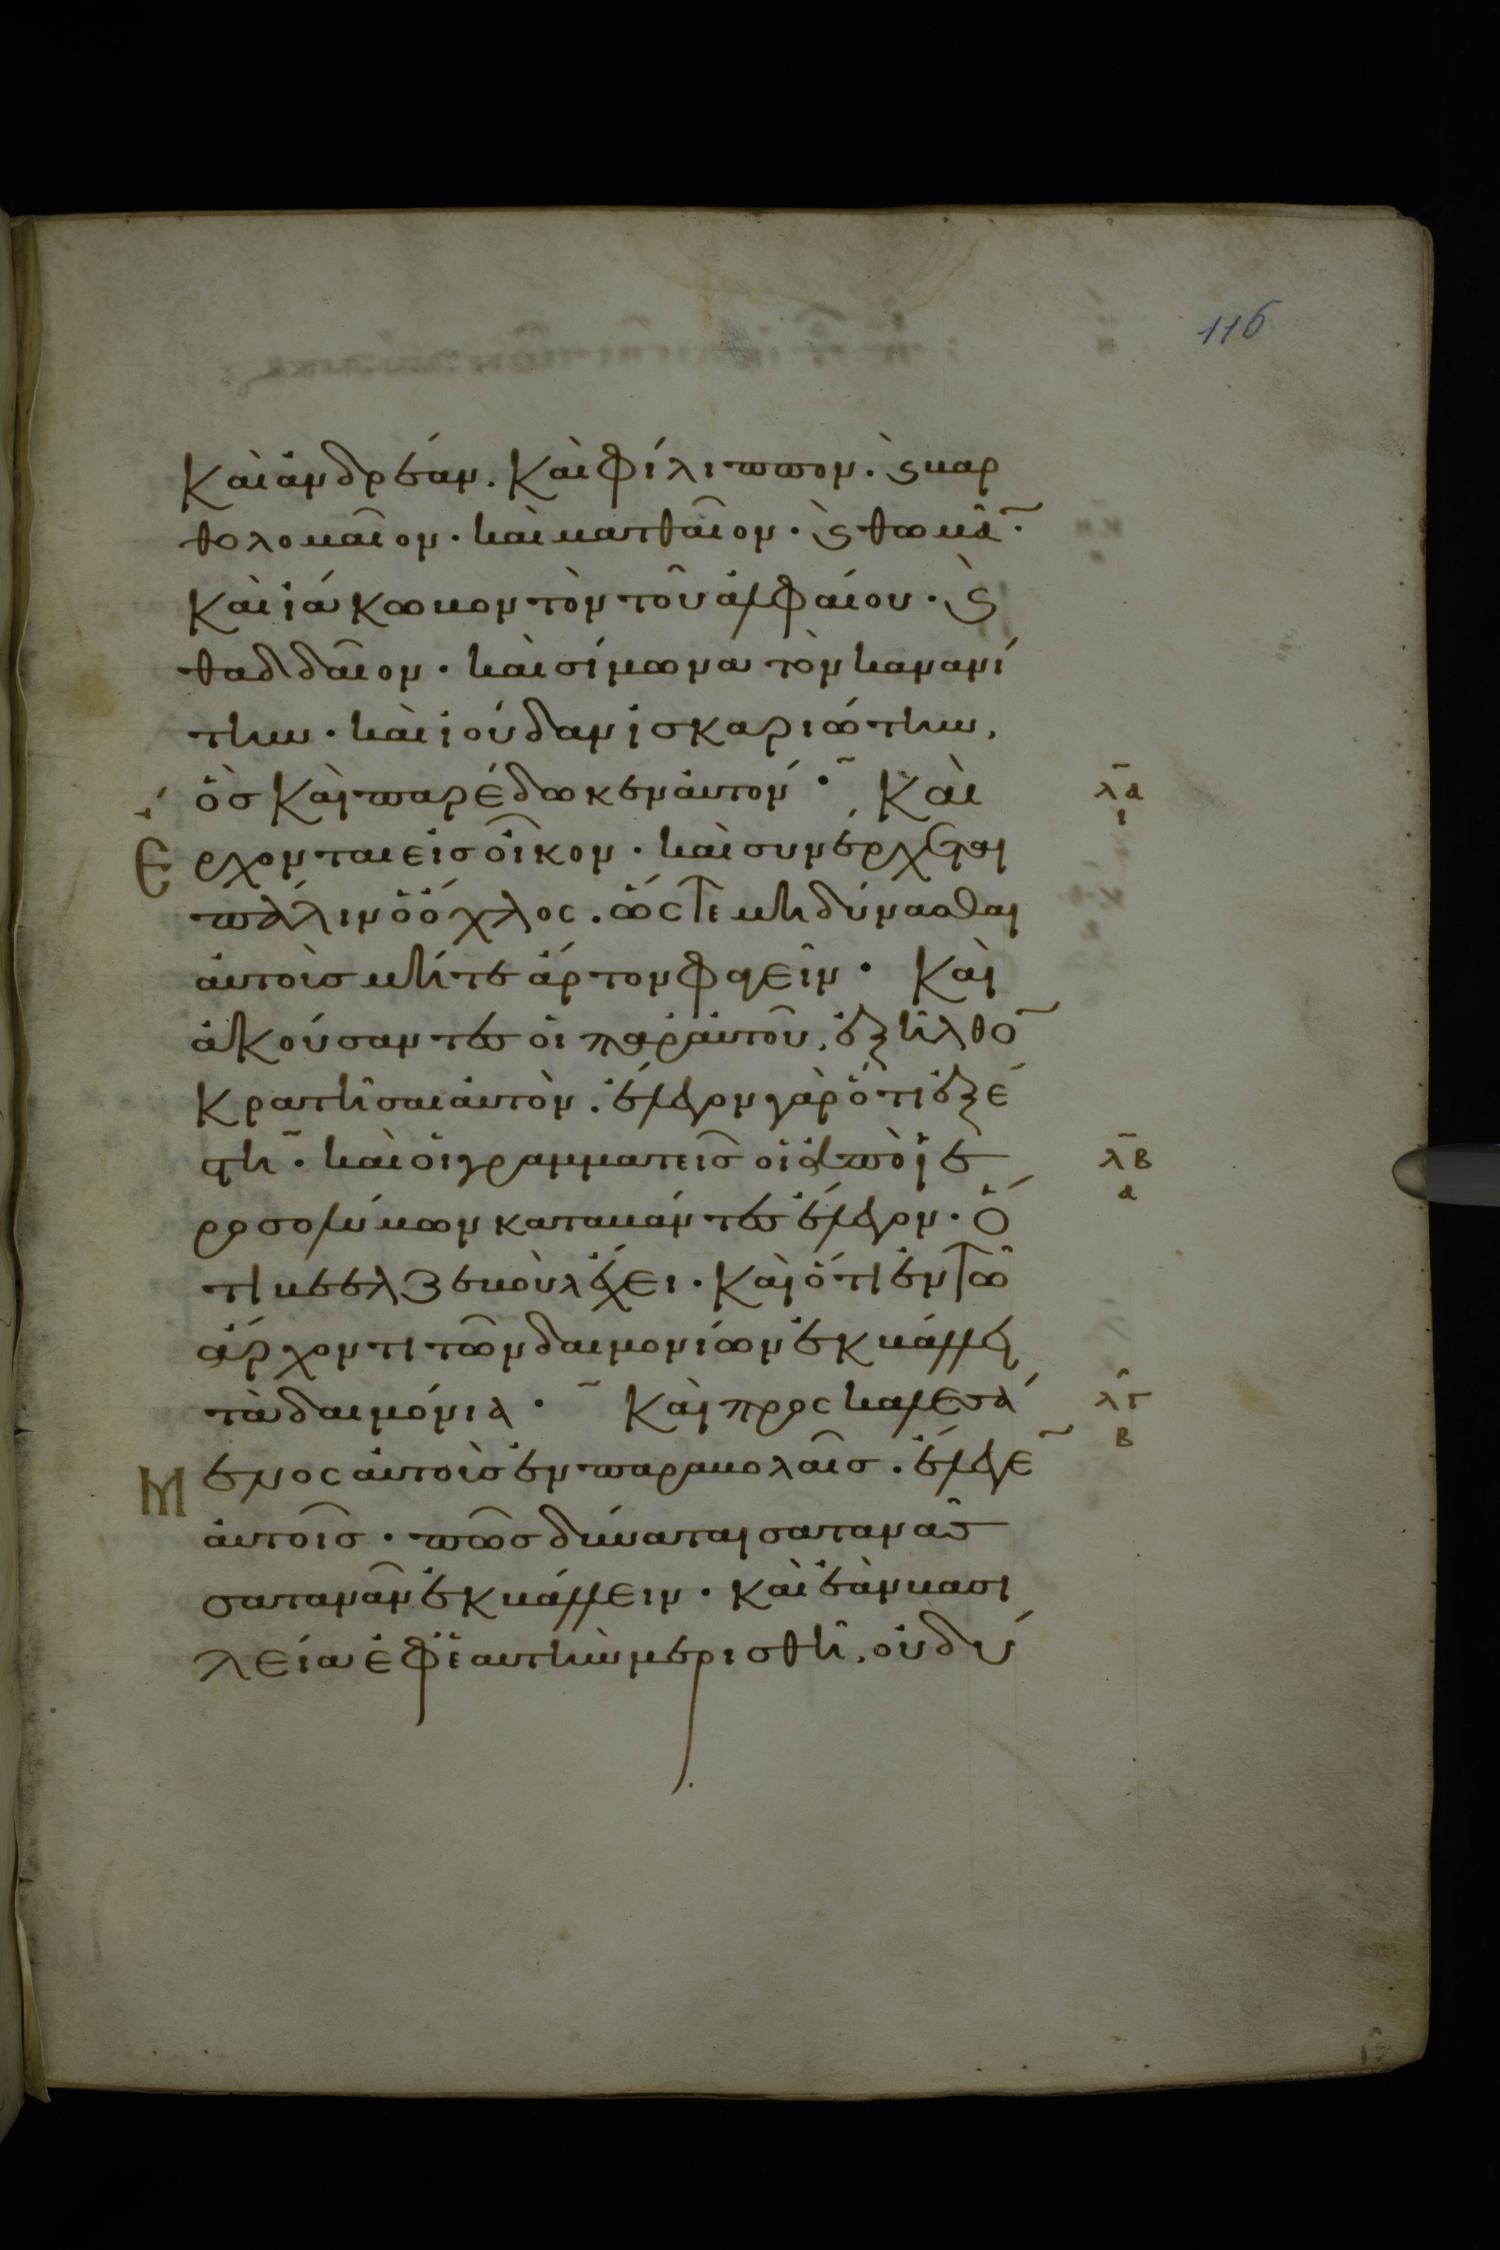 116
Καὶ ἀνδρέαν. Καὶ φίλιππον. ϗ βαρ
θολομαῖον· καὶ ματθαῖον· ϗ θωμᾶ̃·
Καὶ ἰάκωβον τὸν τοῦ ἀλφαίου· ϗ
θαδδαῖον· καὶ σίμωνα τὸν κανανί
την· καὶ ἰούδαν ἰσκαριώτην,
ὃσ Καὶ παρέδωκεν ἀυτόν· Καὶ λ̅α̅ ι
Ἔρχονται εἰσ οἶκον· καὶ συνέρχεται
πάλιν ὁ ὄχλος. ὥστε μὴ δύνασθαι
ἀυτοὺσ μήτε ἄρτον φαγεῖν· Καὶ
ἀκούσαντεσ ὁι παρ ἀυτοῦ, ἐξῆλθο̅
Κρατῆσαι ἀυτὸν. ἔλεγον γὰρ ὅτι ἐξέ
στη· καὶ ὁι γραμματεῖσ ὁι ἀπὸ ἱε λ̅β̅ α
ροσολύμων καταβάντεσ ἔλεγον· Ὅ
τι βεελζεβοὺλ ἔχει· Καὶ ὅτι ἐν τῶ
ἄρχοντι τῶν δαιμονίων ἐκβάλλει
τὰ δαιμόνια· Καὶ προσκαλεσά λ̅γ̅ β
Μενος ἀυτοὺσ ἐν παραβολαῖσ. ἔλεγε̅
ἀυτοῖσ· πῶσ δύναται σατανᾶσ
σατανᾶν ἐκβάλλειν· Καὶ ἐὰν βασι
λεία ἐφ ἑαυτὴν μερισθῆ, ὀυ δύ